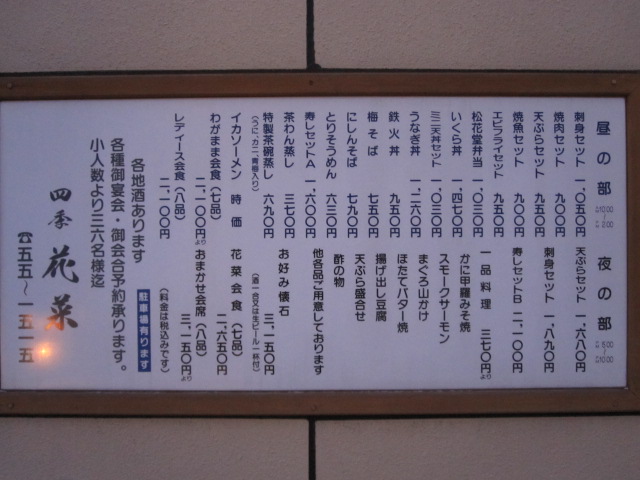 昼の部
刺身セット 一、〇五〇円
焼肉セット 九〇〇円
天ぷらセット 九五〇円
焼魚セット 九〇〇円
エビフライセット 九五〇円
松花堂弁当 一、〇三〇円
いくら丼 一、四七〇円
ミニ天丼セット 一、〇三〇円
うなぎ丼 一、二六〇円
鉄火丼 九五〇円
梅そば 七五〇円
にしんそば 七九〇円
とりそうめん 六三〇円
寿しセットA 一、六〇〇円
茶わん蒸し 三七〇円
特製茶碗蒸し 六九〇円
(うに、カニ、貴樹入り)
イカソーメン 時価
わがまま会食(七品) 二、一〇〇円より
レディース会食(八品) 二、一〇〇円
夜の部
天ぷらセット 一、六八〇円
刺身セット 一、八九〇円
寿しセットB 二、一〇〇円
一品料理 三七〇円より
かに甲羅みそ焼
スモークサーモン
まぐろ山かけ
ほたてバター焼
揚げ出し豆腐
天ぷら盛合せ
酢の物
他各品ご用意しております
お好み懐石 三、一五〇円
(酒一合又は生ビール一杯付)
花菜会食(七品) 二、六五〇円
おまかせ会席(八品) 三、一五〇円より
(料金は税込みです)
各地酒あります 駐車場有ります
各種御宴会・御会合予約承ります。
小人数より三六名様迄
四季 花菜
☎五五〜一五一五